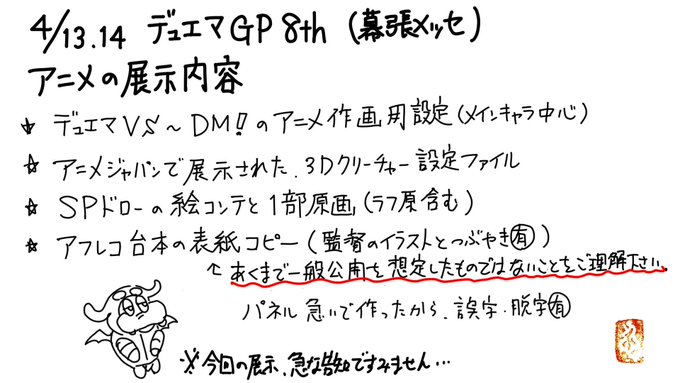 4/13.14 デュエマGP8th (幕張メッセ)
アニメの展示内容
★ デュエマVS～DM!のアニメ作画用設定(メインキャラ中心)
★ アニメジャパンで展示された、3Dクリーチャー設定ファイル
★ SPドローの絵コンテと1部原画(ラフ原含む)
★ アフレコ台本の表紙コピー(監督のイラストとつぶやき㊒)
↑あくまで一般公開を想定したものではないことをご理解下さい。
パネル急いで作ったから、誤字・脱字㊒
※今回の展示、急な告知ですみません…